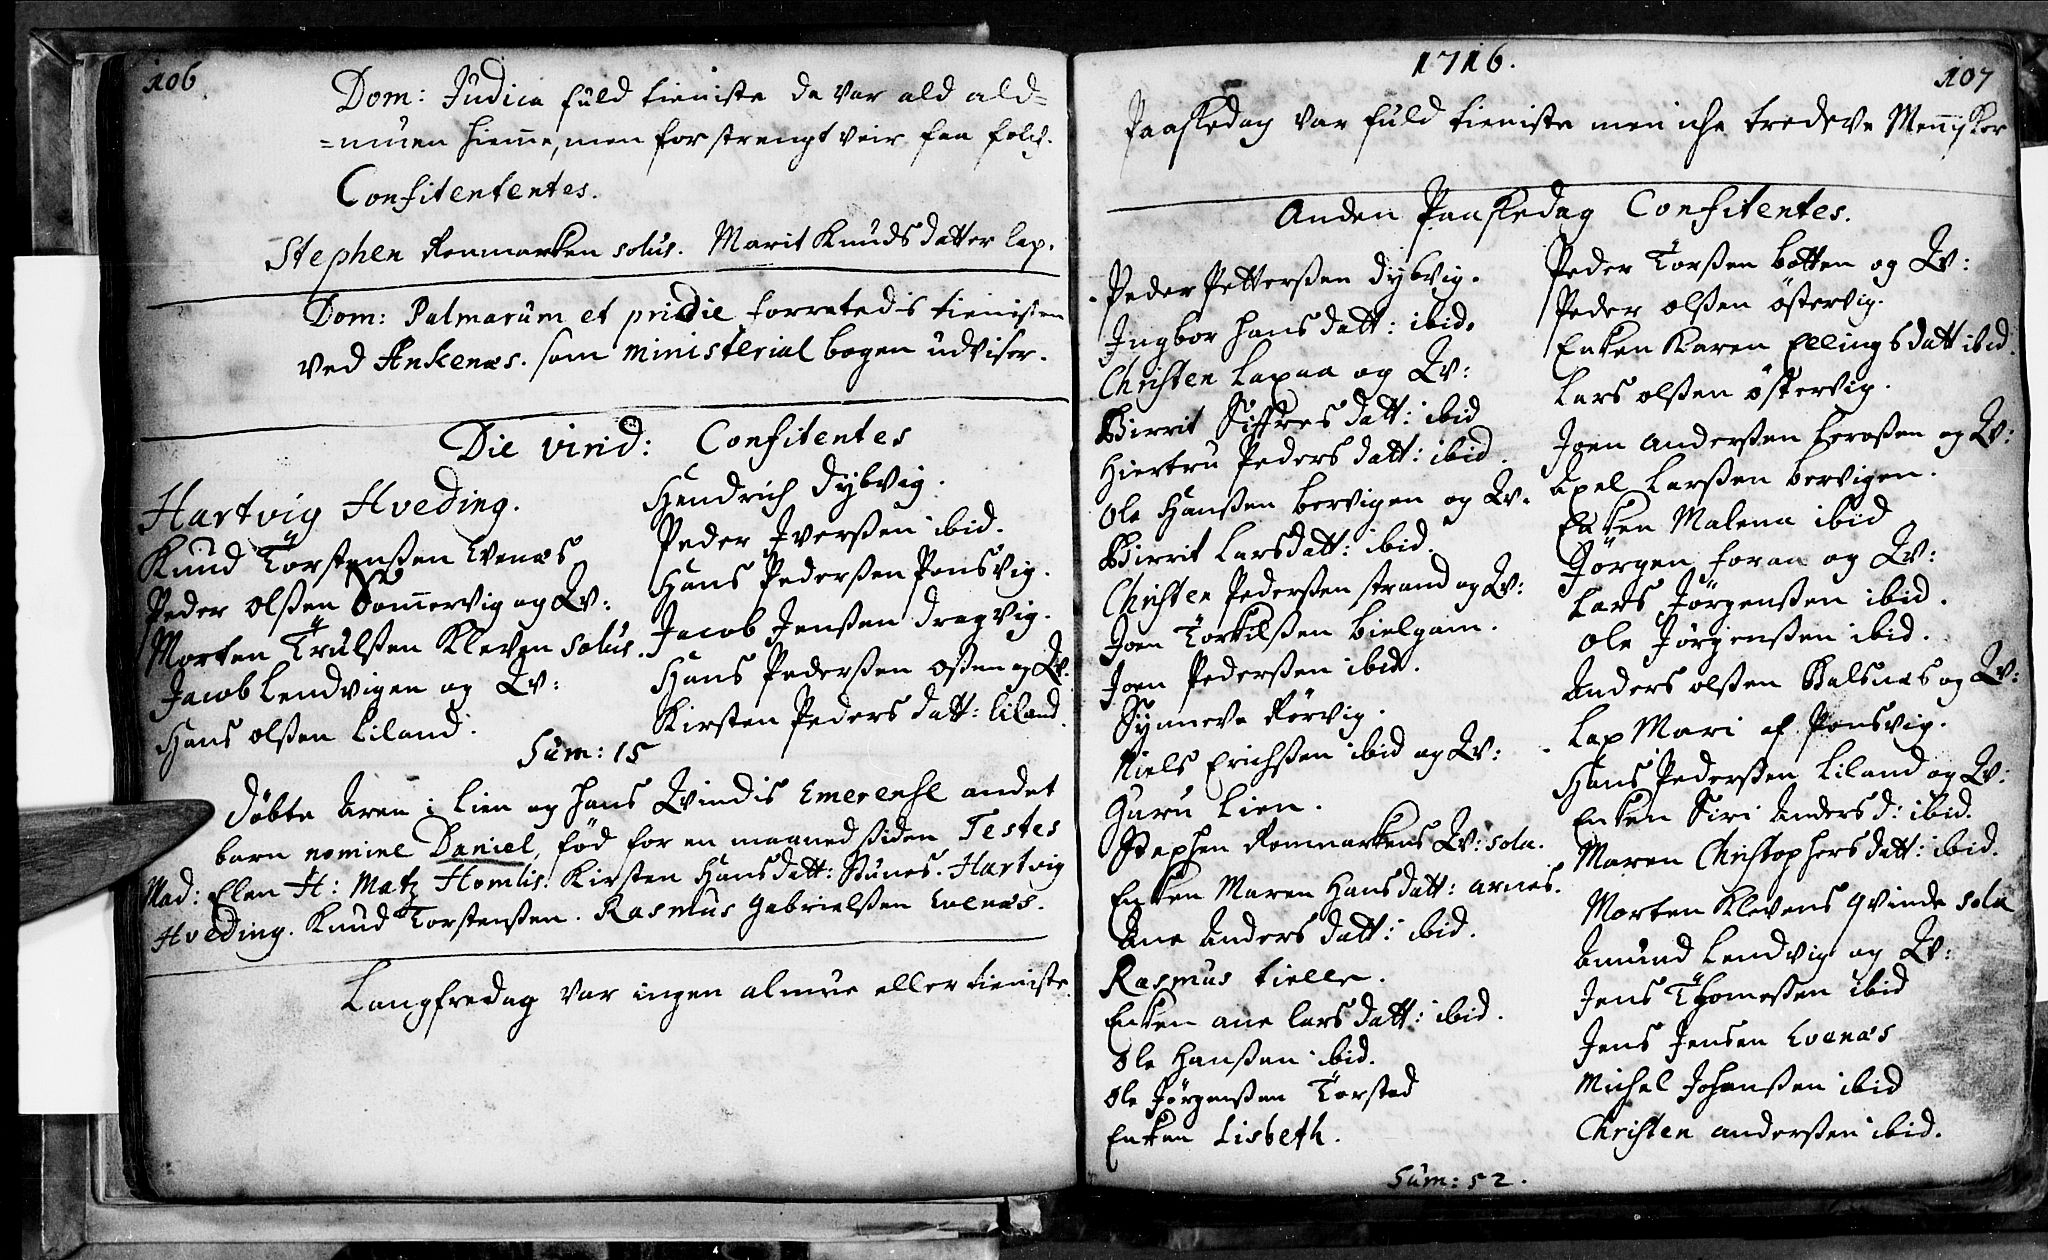 106
Dom: Judica fuld tieniste da var ald ald=
=muen hiemme, men for strengt veir faa folch.
Confitententes.
Stephen Renmarken solus. Marit Knuds datter lap.
Dom: Palmarum et pridie forretedis tienisten
ved Ankenæs. som ministerial bogen udviser.
Die virid: Confitentes
Hartvig Hveding.
Knud Torstenßen Evenæs
Peder olßen Sommervig og Qv:
Morten Trulßen Kleven solus.
Jacob Lendvigen og Qv:
Hans olßen Liland.
Hendrich Dybvig.
Peder Iverßen ibid.
Hans Pederßen Ponsvig.
Jacob Jenßen dragvig.
Hans Pederßen oßen og Qv.
Kirsten Peders datt: liland.
Sum: 15
Døbte Aren i Lien og hans Qvindis Emerense andet
barn nomine Daniel, fød for en maaned siden Testes
Mad: Elen H: Matz Homlis. Kirsten Hansdatt: Stunes. Hartvig
Hveding. Knud Torstenßen. Rasmus Gabrielßen Evenæs.
Langfredag var ingen almue eller tieniste.
1716.
107
Paaskedag var fuld tieniste men iche tredeve Mennisker
Anden Paaskedag Confitentes.
Peder Petterßen Dybvig.
Ingbor Hans datt: ibid.
Christen Laxaa og Qv:
Birrit Siffres datt: ibid
Hiertru Peders datt: ibid.
Ole Hanßen bervigen og Qv.
Birrit Larsdatt: ibid.
Christen Pederßen strand og Qv:
Joen Torkilßen bielgam.
Joen Pederßen ibid.
Synneve Rørvig.
Niels Erichßen ibid og Qv:
Guru Lien.
Stephen Renmarkens Qv: sola.
Enken Maren Hans datt: arnes.
Ane Anders datt: ibid.
Rasmus tielle.
Enken ane lars datt: ibid.
Ole Hanßen ibid.
Ole Jørgenßen Torstad
Enken Lisbeth.
Peder Torßen botten og Qv:
Peder olßen østervig.
Enken Karen Ellings datt ibid.
Lars olßen østervig.
Joen Anderßen forosen og Qv:
Axel Larßen bervigen.
Enken Malena ibid
Jørgen foraa og Qv:
Lars Jørgenßen ibid.
Ole Jørgenßen ibid.
Anders olßen Balsnes og Qv:
Lap Mari af Ponsvig.
Hans Pederßen Liland og Qv:
Enken Siri Anders d: ibid.
Maren Christophers datt: ibid.
Morten Klevens qvinde sola
Amund Lendvig og Qv:
Jens Thomeßen ibid
Jens Jensen Evenæs
Michel Johanßen ibid
Christen anderßen ibid.
Sum: 52.